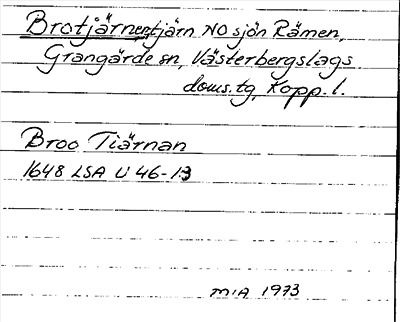 Brotjärnen, tjärn NO sjön Rämen,
Grangärde sn, Västerbergslags
doms.tg, Kopp.l.
Broo Tiärnan
1648 LSA U 46-1:3
MIA 1973